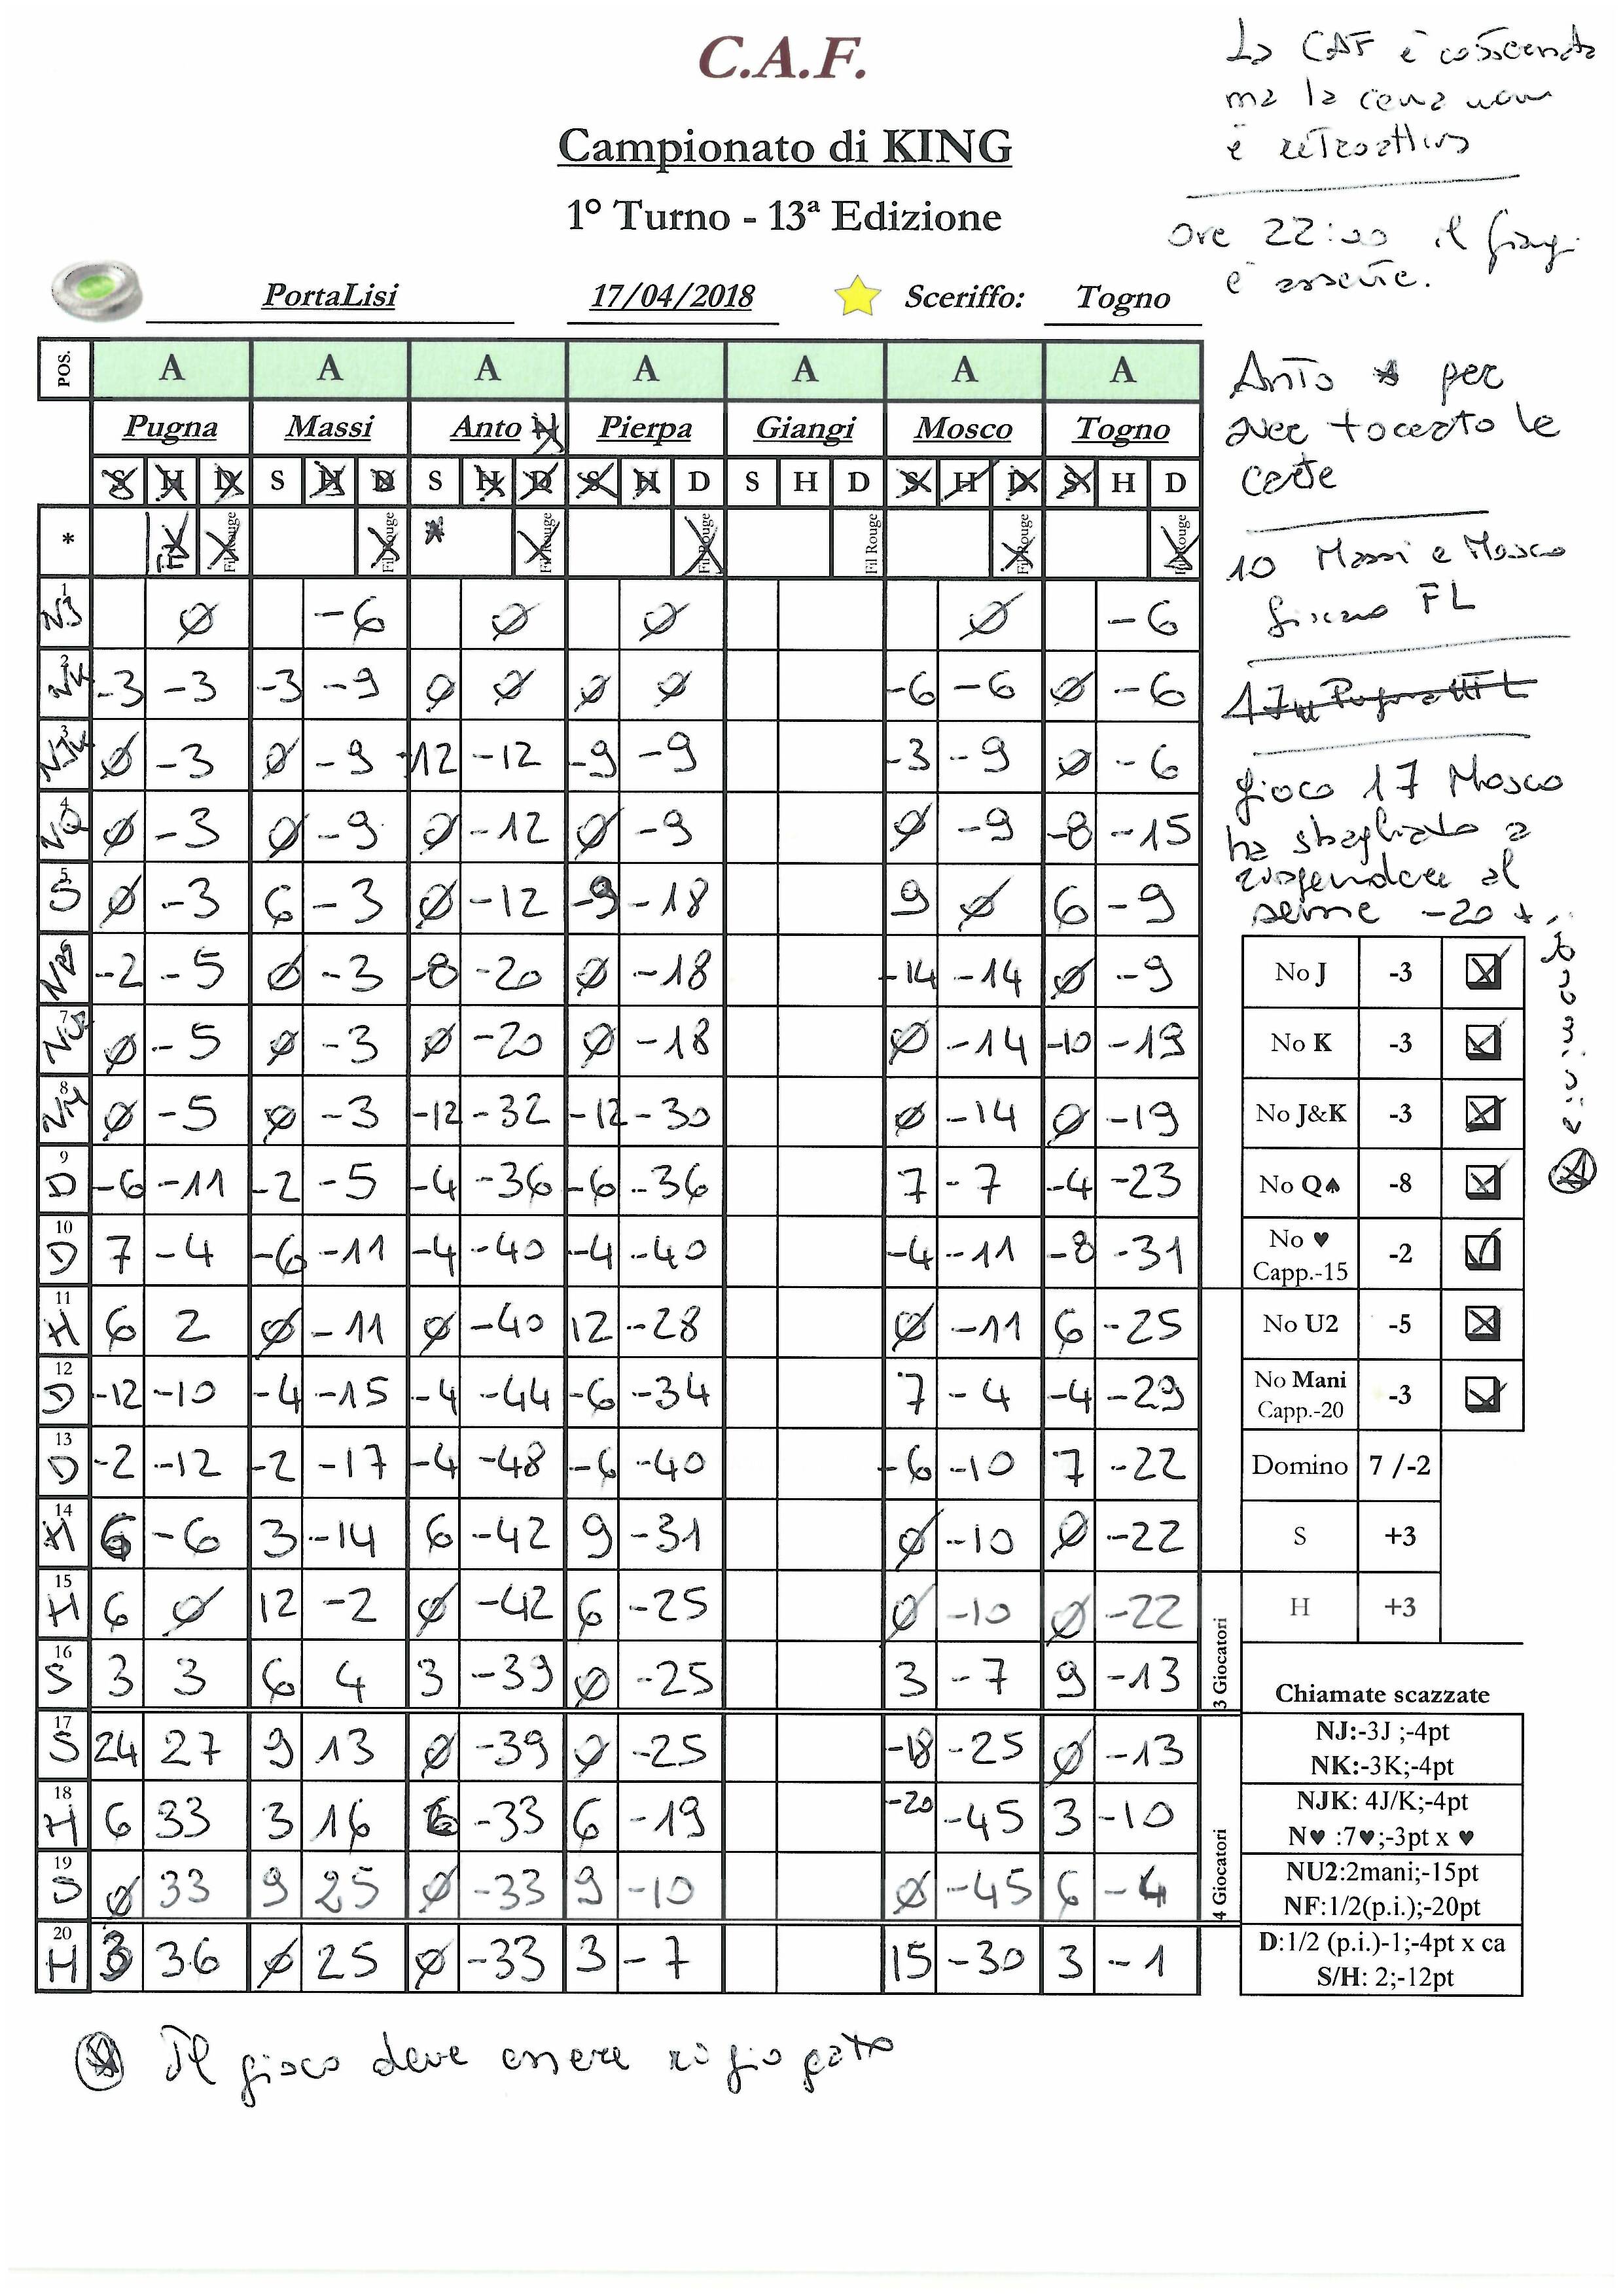 C.A.F.
Campionato di KING
1° Turno - 13ª Edizione
La CAF è
ma la cena non
è retroattiva
ore 22:00 il Giangi
è assente.
PortaLisi 17/04/2018 Sceriffo: Togno
POS. A A A A A A A
Pugna Massi Anto Pierpa Giangi Mosco Togno
S H D S H D S H D S H D S H D S H D S H D
* Fil Rouge Fil Rouge * Fil Rouge Fil Rouge Fil Rouge Fil Rouge Fil Rouge
Anto * per
aver toccato le
carte
10 Massi e Mosco
FL
gioco 17 Mosco
ha sbagliato a
rispondere al
seme -20 *
1 NJ Ø -6 Ø Ø Ø -6
2 NK -3 -3 -3 -9 Ø Ø Ø Ø -6 -6 Ø -6
3 NJK Ø -3 Ø -9 -12 -12 -9 -9 -3 -9 Ø -6
4 NQ Ø -3 Ø -9 Ø -12 Ø -9 Ø -9 -8 -15
5 S Ø -3 6 -3 Ø -12 -9 -18 9 Ø 6 -9
6 -2 -5 Ø -3 -8 -20 Ø -18 -14 -14 Ø -9
7 Ø -5 Ø -3 Ø -20 Ø -18 Ø -14 -10 -19
8 Ø -5 Ø -3 -12 -32 -12 -30 Ø -14 Ø -19
9 D -6 -11 -2 -5 -4 -36 -6 -36 7 -7 -4 -23
10 D 7 -4 -6 -11 -4 -40 -4 -40 -4 -11 -8 -31
11 H 6 2 Ø -11 Ø -40 12 -28 Ø -11 6 -25
12 D -12 -10 -4 -15 -4 -44 -6 -34 7 -4 -4 -29
13 D -2 -12 -2 -17 -4 -48 -6 -40 -6 -10 7 -22
14 H 6 -6 3 -14 6 -42 9 -31 Ø -10 Ø -22
15 H 6 Ø 12 -2 Ø -42 6 -25 Ø -10 Ø -22
16 S 3 3 6 4 3 -39 Ø -25 3 -7 9 -13
17 S 24 27 9 13 Ø -39 Ø -25 -18 -25 Ø -13
18 H 6 33 3 16 6 -33 6 -19 -20 -45 3 -10
19 S Ø 33 9 25 Ø -33 9 -10 Ø -45 6 -4
20 H 3 36 Ø 25 Ø -33 3 -7 15 -30 3 -1
3 Giocatori
4 Giocatori
No J -3
No K -3
No J&K -3
No Q♠ -8
No ♥
Capp.-15 -2
No U2 -5
No Mani
Capp.-20 -3
Domino 7 /-2
S +3
H +3
Chiamate scazzate
NJ:-3J ;-4pt
NK:-3K;-4pt
NJK: 4J/K;-4pt
N♥ :7♥;-3pt x ♥
NU2:2mani;-15pt
NF:1/2(p.i.);-20pt
D:1/2 (p.i.)-1;-4pt x ca
S/H: 2;-12pt
* Il gioco deve essere rigiocato